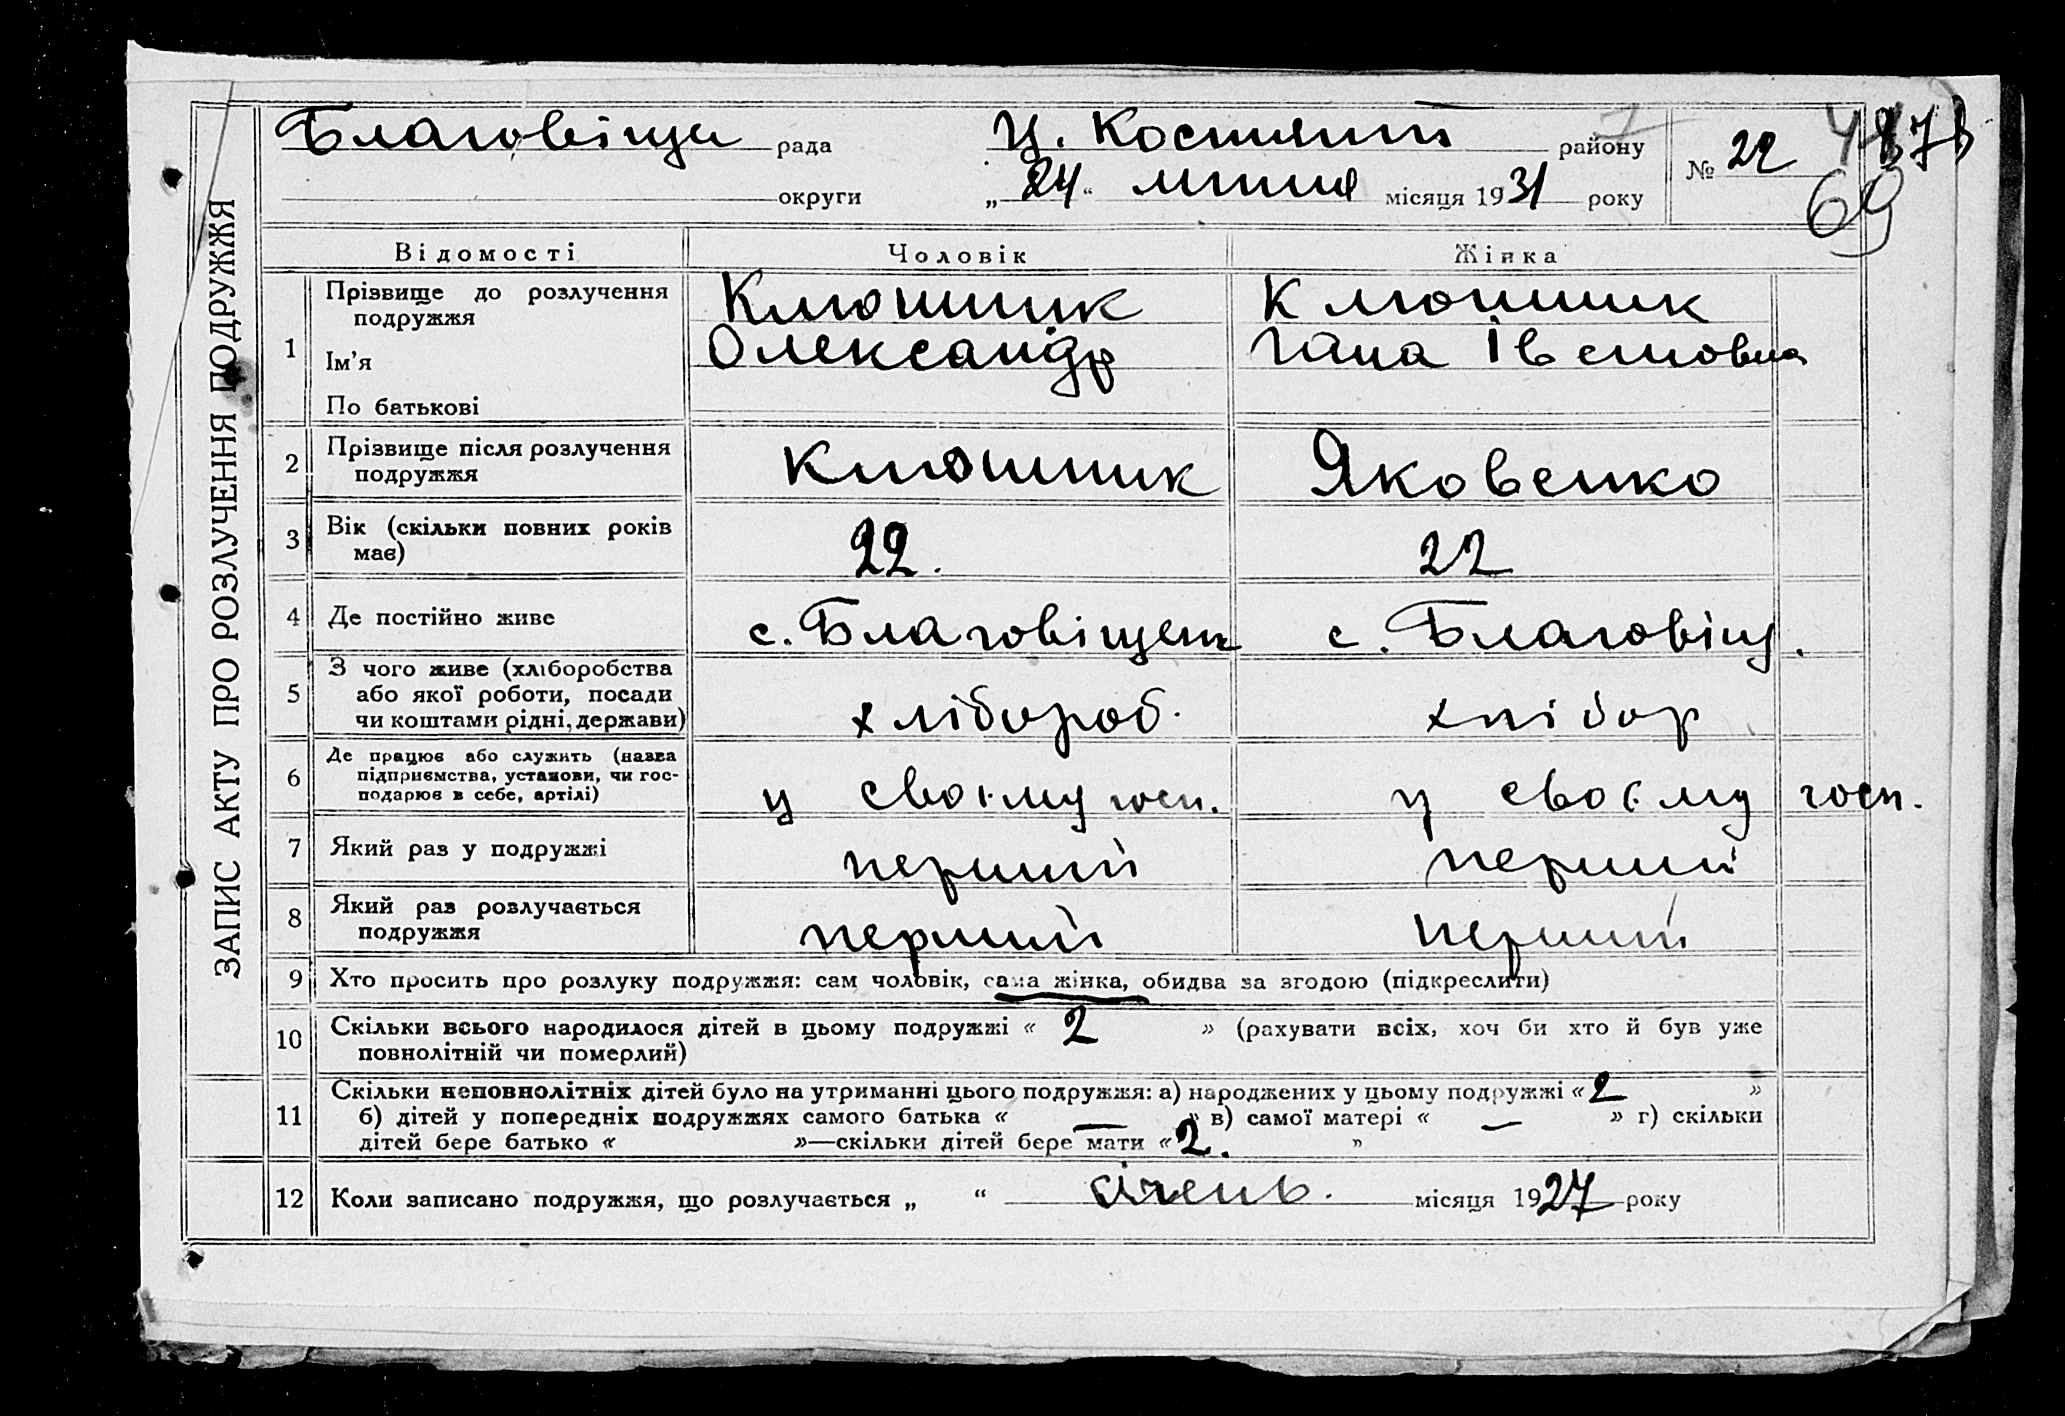 ЗАПИС АКТУ ПРО РОЗЛУЧЕННЯ ПОДРУЖЖЯ
Благовіщи рада Ц. Костянт району № 22
округи „24“ липня місяця 1931 року 69
Відомості Чоловік Жінка
1 Прізвище до розлучення подружжя Клюшник Клюшник
Ім'я Олександр Гана Івановна
По батькові
2 Прізвище після розлучення подружжя Клюшник Яковенко
3 Вік (скільки повних років має) 22. 22
4 Де постійно живе с. Благовіщен с. Благовіщ.
5 З чого живе (хліборобства або якої роботи, посади чи коштами рідні, держави) хлібороб. хлібор
6 Де працює або служить (назва підприємства, установи, чи господарює в себе, артілі) у своїму госп. у своїму госп.
7 Який раз у подружжі перший перший
8 Який раз розлучається подружжя перший перший
9 Хто просить про розлуку подружжя: сам чоловік, сама жінка, обидва за згодою (підкреслити)
10 Скільки всього народилося дітей в цьому подружжі « 2 » (рахувати всіх, хоч би хто й був уже
повнолітній чи померлий)
11 Скільки неповнолітніх дітей було на утриманні цього подружжя: а) народжених у цьому подружжі « 2 »
б) дітей у попередніх подружжях самого батька « — » в) самої матері « — » г) скільки
дітей бере батько « »—скільки дітей бере мати « 2. »
12 Коли записано подружжя, що розлучається „ “ січень. місяця 1927 року